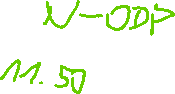 N-ODP
11.50